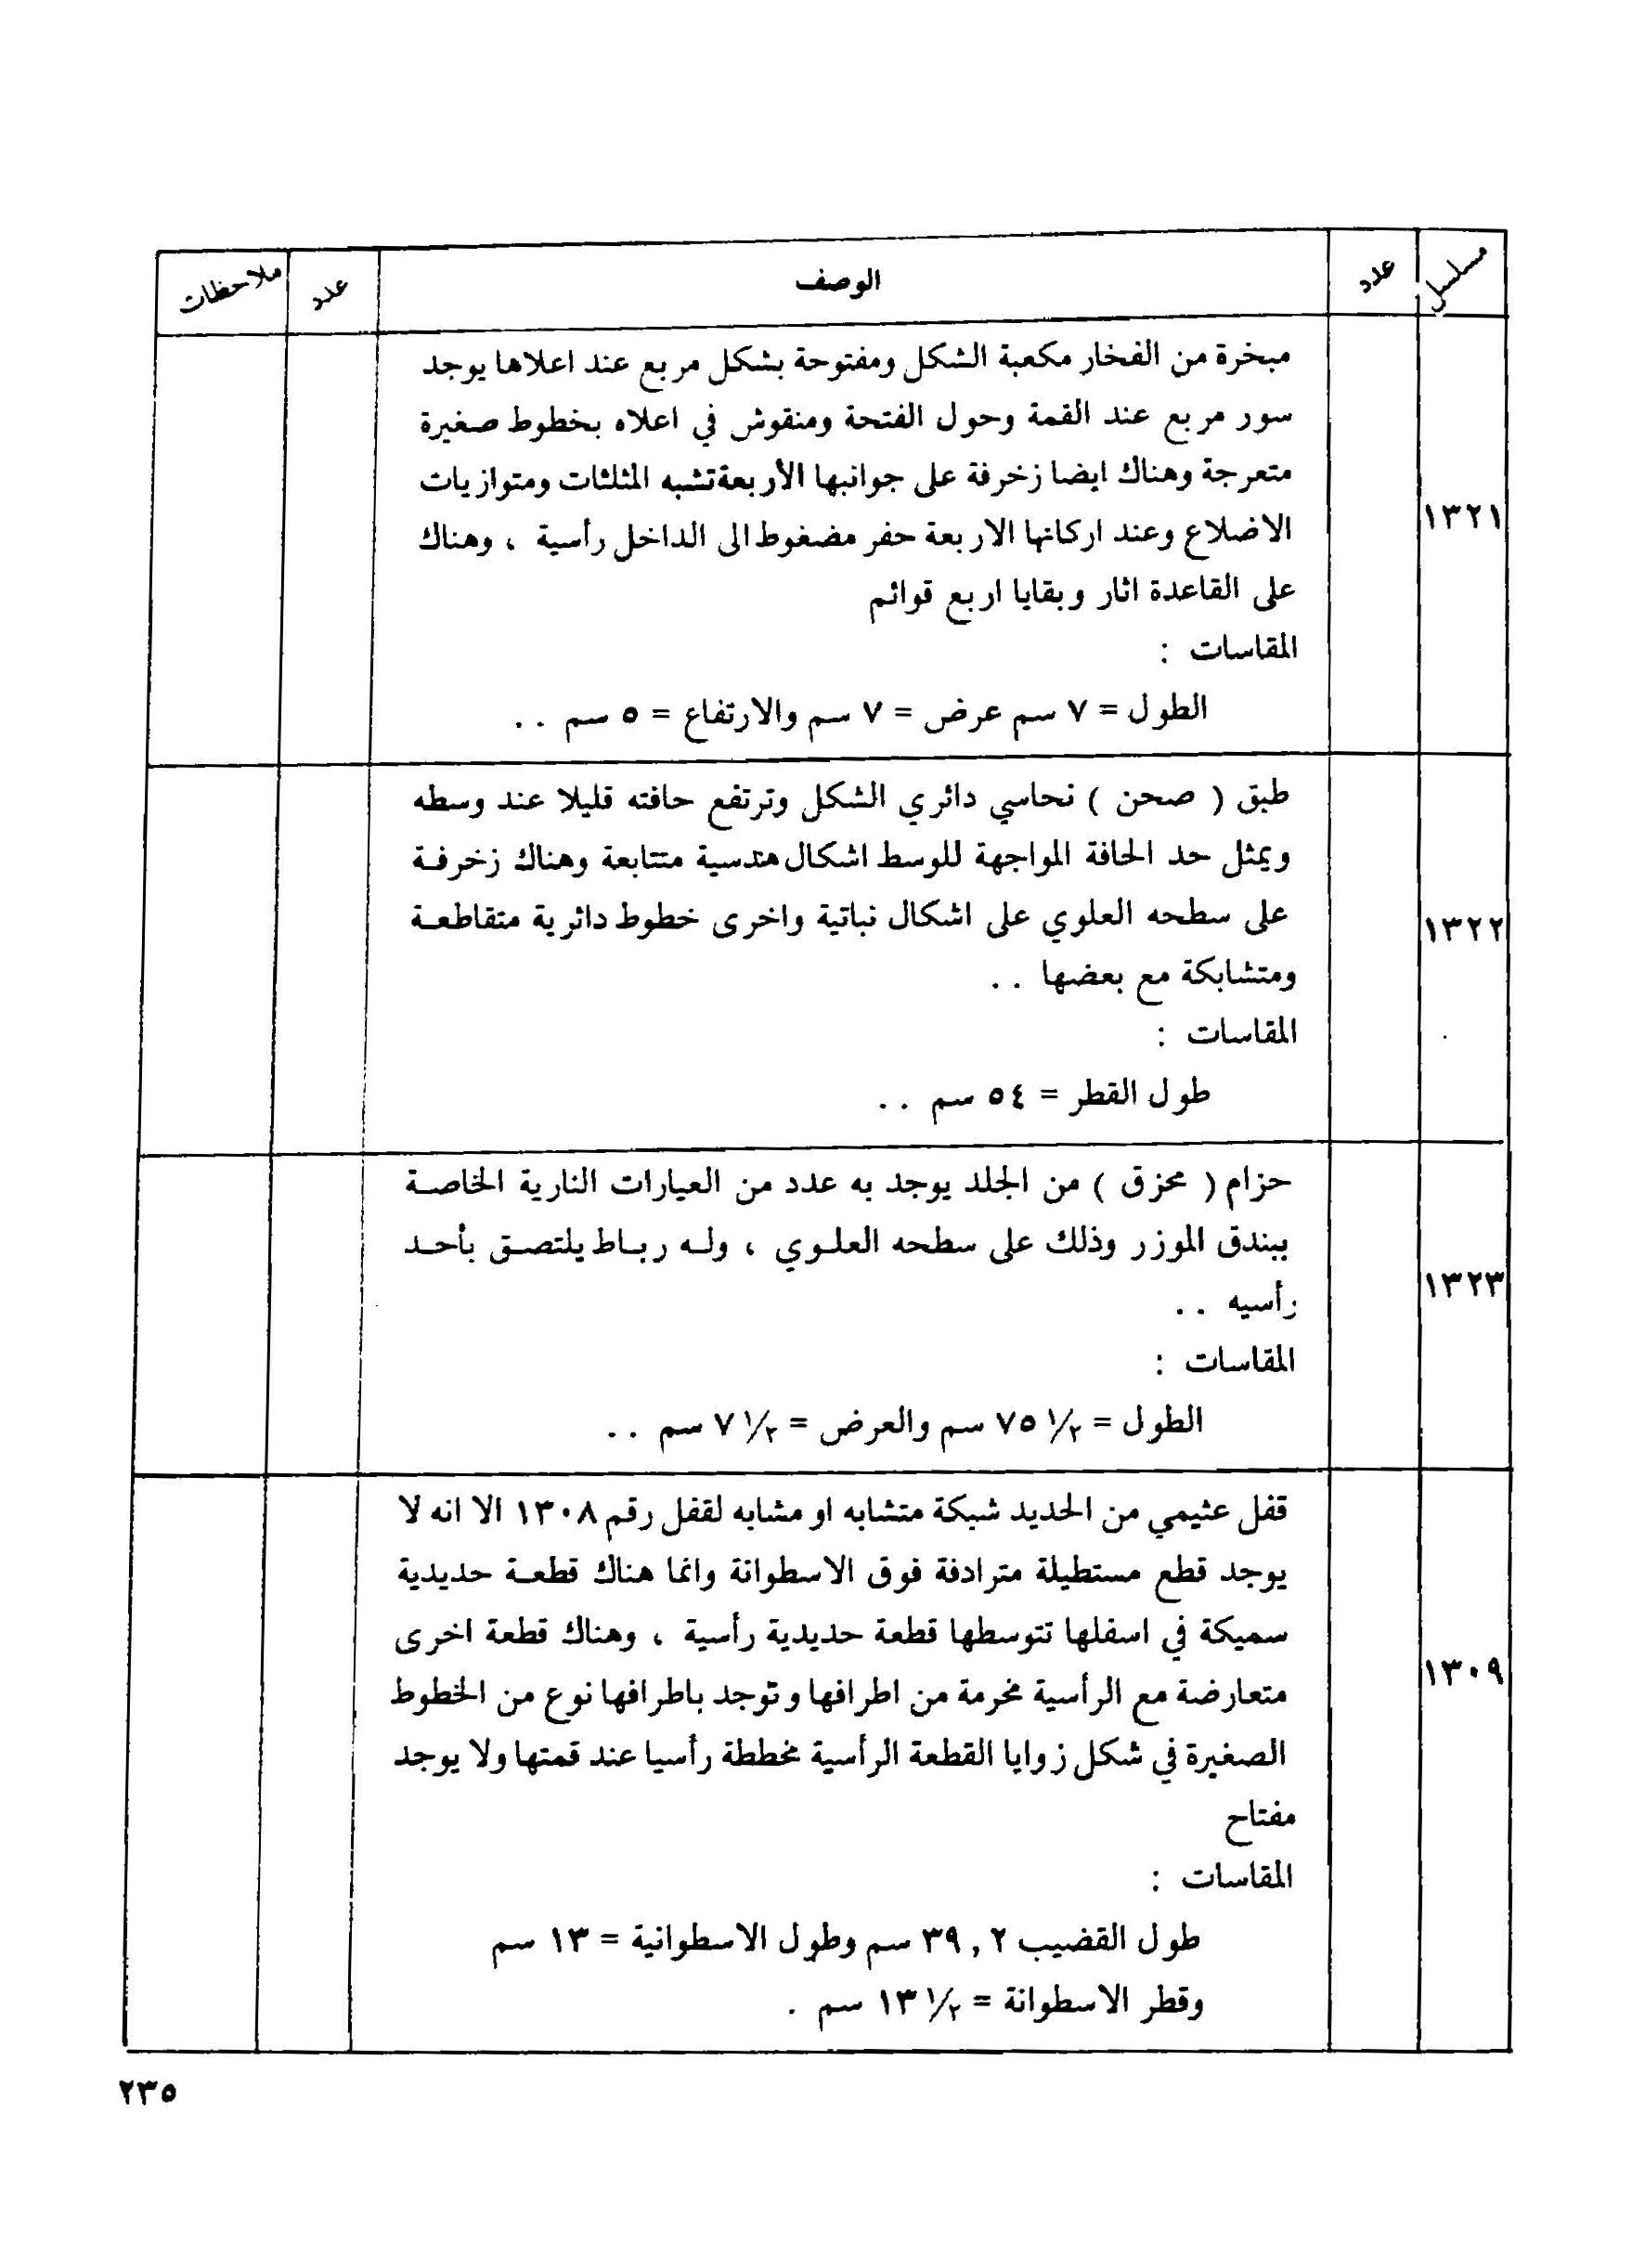 مسلسل عدد الوصف عدد ملاحظات
مبخرة من الفخار مكعبة الشكل ومفتوحة بشكل مربع عند اعلاها يوجد
سور مربع عند القمة وحول الفتحة ومنقوش في اعلاه بخطوط صغيرة
متعرجة وهناك ايضا زخرفة على جوانبها الأربعة تشبه المثلثات ومتوازيات
١٣٢١
الاضلاع وعند اركانها الاربعة حفر مضغوط الى الداخل رأسية ، وهناك
على القاعدة اثار وبقايا اربع قوائم
المقاسات :
الطول = ٧ سم عرض = ٧ سم والارتفاع = ٥ سم ..
طبق ( صحن ) نحاسي دائري الشكل وترتفع حافته قليلا عند وسطه
ويمثل حد الحافة المواجهة للوسط اشكال هندسية متتابعة وهناك زخرفة
على سطحه العلوي على اشكال نباتية واخرى خطوط دائرية متقاطعة
١٣٢٢
ومتشابكة مع بعضها ..
المقاسات :
طول القطر = ٥٤ سم ..
حزام ( محزق ) من الجلد يوجد به عدد من العيارات النارية الخاصة
ببندق الموزر وذلك على سطحه العلوي ، وله رباط يلتصق بأحد
١٣٢٣
رأسيه ..
المقاسات :
الطول = ١/٢ ٧٥ سم والعرض = ١/٢ ٧ سم ..
قفل عثيمي من الحديد شبكة متشابه او مشابه لقفل رقم ١٣٠٨ الا انه لا
يوجد قطع مستطيلة مترادفة فوق الاسطوانة وانما هناك قطعة حديدية
سميكة في اسفلها تتوسطها قطعة حديدية رأسية ، وهناك قطعة اخرى
١٣٠٩
متعارضة مع الرأسية مخرمة من اطرافها وتوجد باطرافها نوع من الخطوط
الصغيرة في شكل زوايا القطعة الرأسية مخططة رأسيا عند قمتها ولا يوجد
مفتاح
المقاسات :
طول القضيب ٣٩,٢ سم وطول الاسطوانية = ١٣ سم
وقطر الاسطوانة = ١/٢ ١٣ سم .
٢٣٥